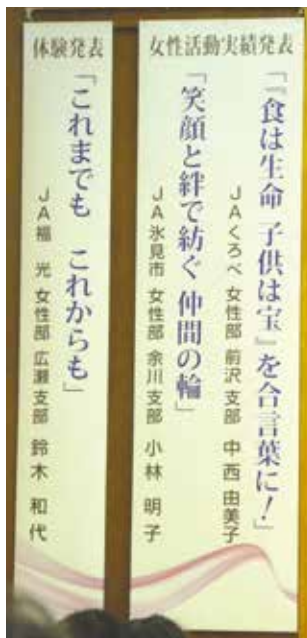 女性活動実績発表
「『食は生命 子供は宝』を合言葉に!」
JAくろべ 女性部 前沢支部 中西 由美子
「笑顔と絆で紡ぐ 仲間の輪」
JA氷見市 女性部 余川支部 小林 明子
体験発表
「これまでも これからも」
JA福光 女性部 広瀬支部 鈴木 和代